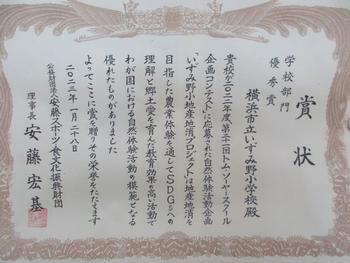 賞状
学校部門
優秀賞
横浜市立いずみ野小学校殿
貴校が二〇二二年度第二十一回トム・ソーヤースクール
企画コンテストに応募された自然体験活動企画
「いずみ野小地産地消プロジェクト」は地産地消を
目指した農業体験を通してSDGsへの
理解と郷土愛を育んだ教育効果の高い活動で
わが国における自然体験活動の模範となる
優れたものがありました
よってここに賞を贈りその栄誉をたたえます
二〇二三年一月二十八日
公益財団法人 安藤スポーツ・食文化振興財団
理事長 安藤宏基